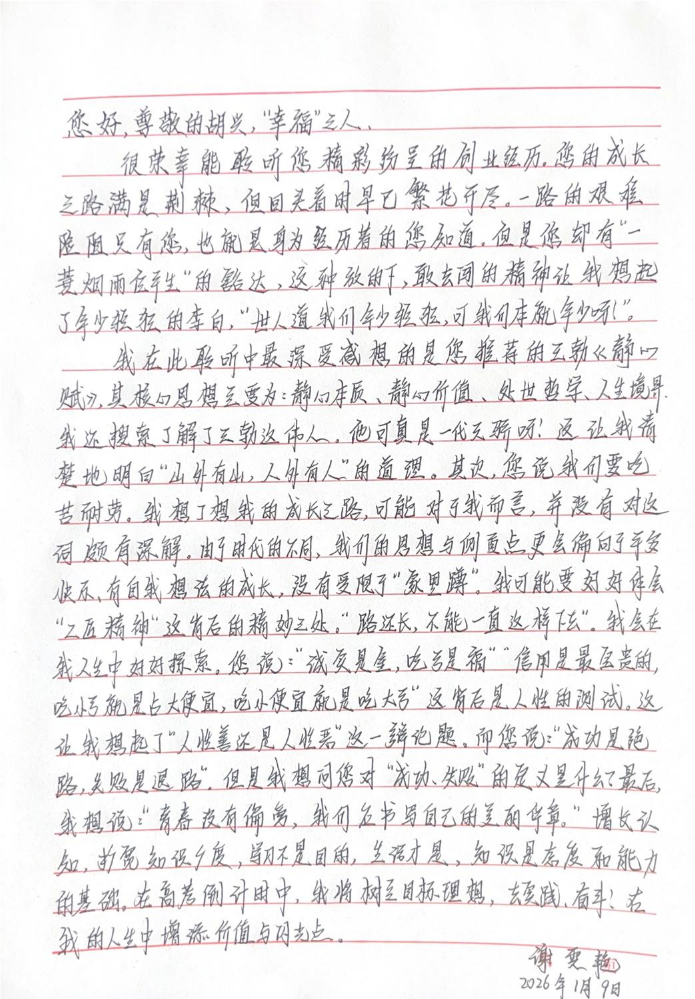 您好,尊敬的胡兴,"幸福"之人、
很荣幸能聆听您精彩纷呈的创业经历。您的成长
之路满是荆棘,但回头看时早已繁花开尽。一路的艰难
险阻只有您,也就是身为经历者的您知道。但是您却有"一
蓑烟雨任平生"的豁达,这种放的下,敢去闯的精神让我想起
了年少轻狂的李白,"世人道我们年少轻狂,可我们本就年少呀!"。
我在此聆听中最深受感想的是您推荐的王勃《静心
赋》,其核心思想主要为:静心本质、静心价值、处世哲学、人生境界.
我还搜索了解了王勃这伟人。他可真是一代天骄呀!这让我清
楚地明白"山外有山,人外有人"的道理。其次,您说我们要吃
苦耐劳。我想了想我的成长之路,可能对于我而言,并没有对这
词颇有深解。由于时代的不同,我们的思想与侧重点更会偏向于平安
快乐、有自我想法的成长,没有受限于"家里蹲"。我可能要好好体会
"工匠精神"这背后的精妙之处。"路还长,不能一直这样下去"。我会在
我人生中好好探索。您说:"诚实是金,吃亏是福""信用是最宝贵的,
吃小亏就是占大便宜,吃小便宜就是吃大亏"这背后是人性的测试。这
让我想起了"人性善还是人性恶"这一辩论题。而您说:"成功是绝
路,失败是退路"。但是我想问您对"成功、失败"的定义是什么?最后,
我想说:"青春没有偏旁,我们在书写自己的美丽华章。"增长认
知,拓宽知识广度,学习不是目的,生活才是,知识是态度和能力
的基础。在高考倒计时中,我将树立目标理想,去实践、奋斗!在
我的人生中增添价值与闪光点。
谢
2026年1月9日